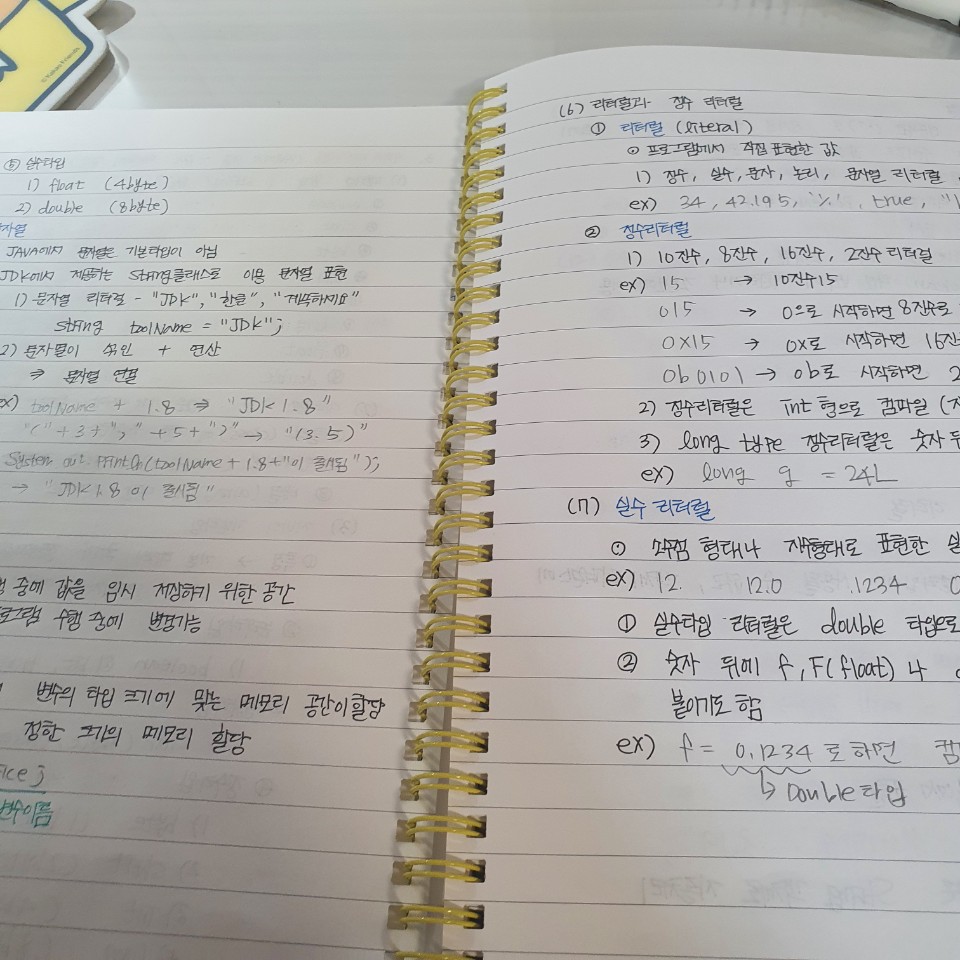 ⑤ 실수타입
1) float (4byte)
2) double (8byte)
JAVA에서 문자열은 기본타입이 아님
JDK에서 제공하는 String클래스로 이용 문자열 표현
1) 문자열 리터럴 - "JDK", "한글", "계속하세요"
String toolName = "JDK";
2) 문자열이 섞인 + 연산
⇒ 문자열 연결
ex) toolName + 1.8 ⇒ "JDK 1.8"
"(" + 3 + "," + 5 + ")" → "(3.5)"
System out println(toolName + 1.8 + "이 출시됨");
→ "JDK 1.8 이 출시됨"
중에 값을 임시 저장하기 위한 공간
프로그램 수행 중에 변경가능
변수의 타입 크기에 맞는 메모리 공간이 할당
정한 크기의 메모리 할당
변수이름
(6) 리터럴과 정수 리터럴
① 리터럴 (literal)
⊙ 프로그램에서 직접 표현한 값
1) 정수, 실수, 문자, 논리, 문자열 리터럴
ex) 34, 42.195, '%', true,
② 정수리터럴
1) 10진수, 8진수, 16진수, 2진수 리터럴
ex) 15 → 10진수15
015 → 0으로 시작하면 8진수로
0x15 → 0x로 시작하면 16진
0b0101 → 0b로 시작하면 2
2) 정수리터럴은 int 형으로 컴파일
3) long type 정수리터럴은 숫자 뒤
ex) long g = 24L
(7) 실수 리터럴
⊙ 소수점 형태나 지수형태로 표현한 실
ex) 12. 12.0 .1234 0
① 실수타입 리터럴은 double 타입으로
② 숫자 뒤에 f, F(float) 나
붙이기도 함
ex) f = 0.1234 로 하면 컴
↳ Double 타입